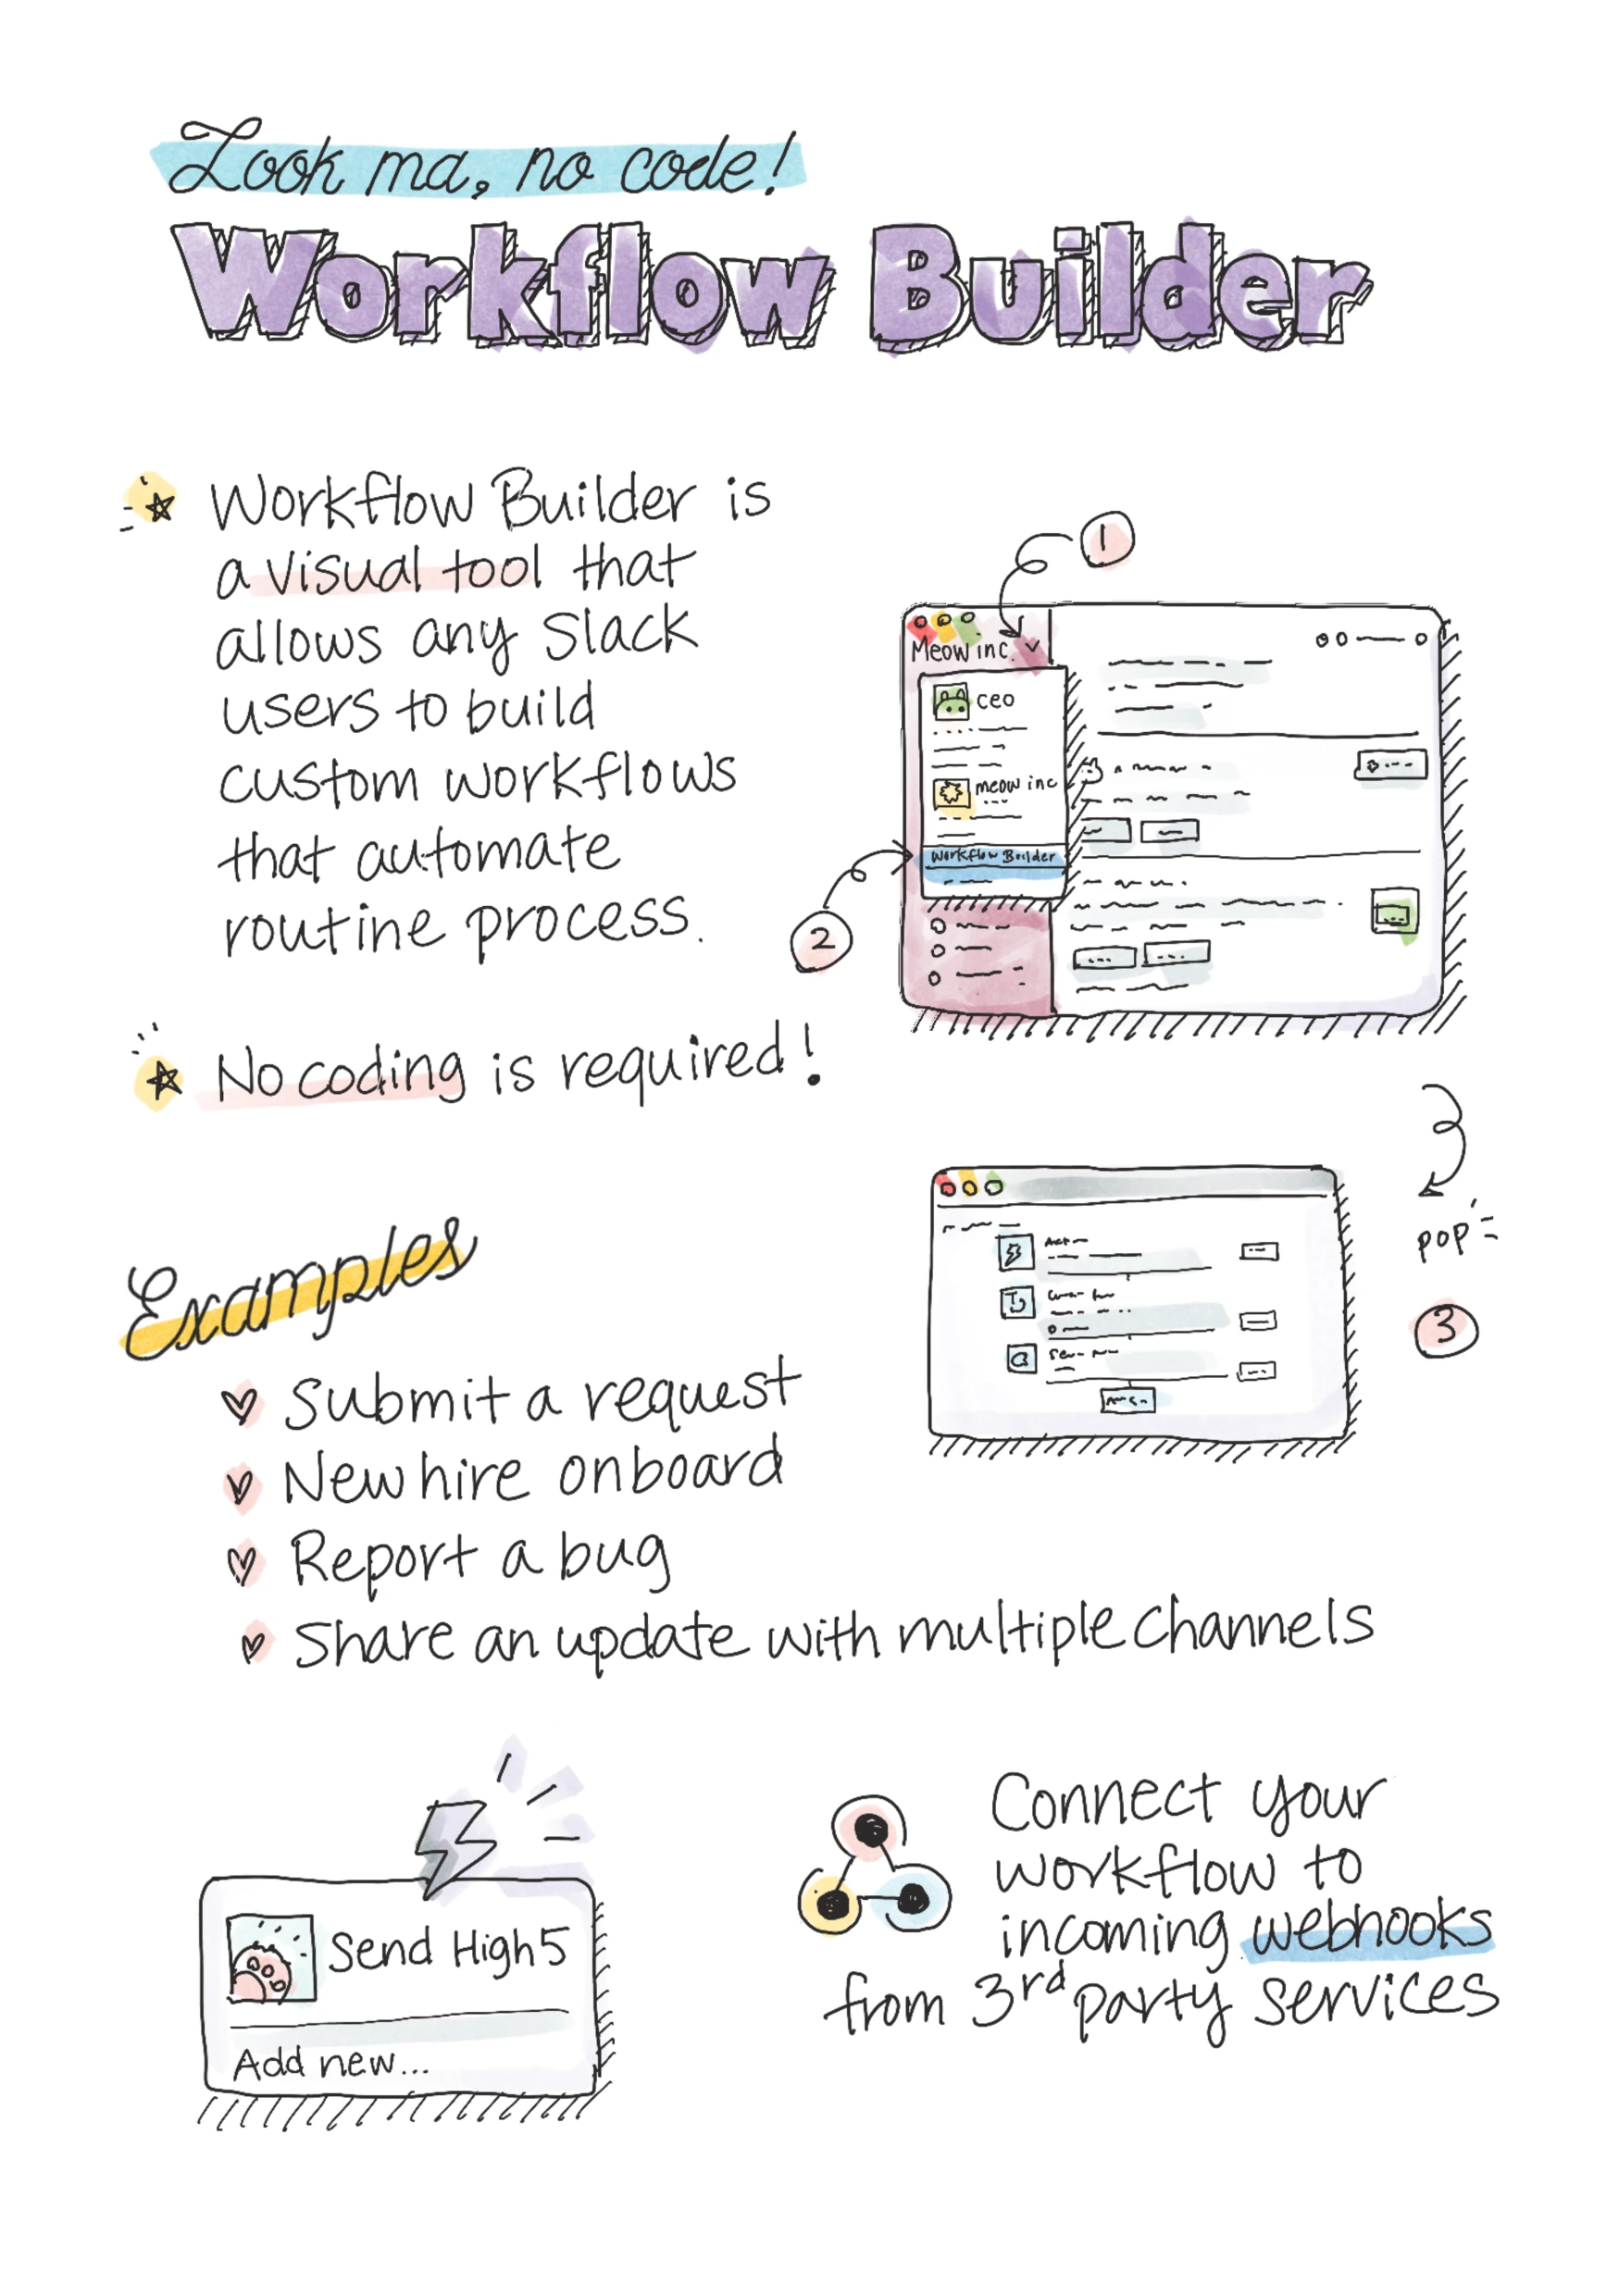 Look ma, no code!
Workflow Builder
Workflow Builder is
a visual tool that
allows any Slack
users to build
custom workflows
that automate
routine process.
No coding is required!
1
Meow inc.
ceo
meow inc
Workflow Builder
2
pop
3
Examples
Submit a request
New hire onboard
Report a bug
Share an update with multiple channels
Send High5
Add new...
Connect your
workflow to
incoming webhooks
from 3rd party services